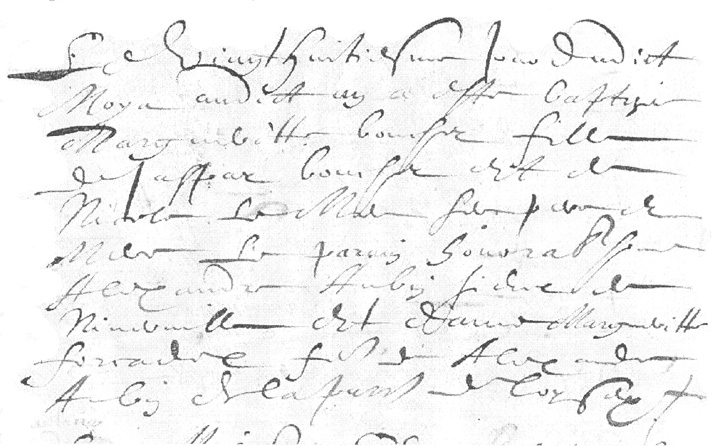 Le vingt huitiesme jour dudict
Moys audict an a esté baptizée
Margueritte boucher fille
de Jaspar boucher et de
Nicole Le ses pere et
Mere Le parain honorable homme
Alexandre Aubin sieur de
et dame Margueritte
de Alexandre
Aubin de la de